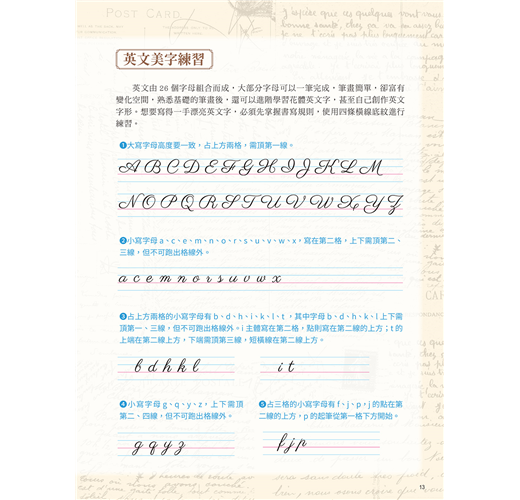 POST CARD
英文美字練習
英文由 26 個字母組合而成，大部分字母可以一筆完成，筆畫簡單，卻富有
變化空間，熟悉基礎的筆畫後，還可以進階學習花體英文字，甚至自己創作英文
字形。想要寫得一手漂亮英文字，必須先掌握書寫規則，使用四條橫線底紋進行
練習。
❶大寫字母高度要一致，占上方兩格，需頂第一線。
A B C D E F G H I J K L M
N O P Q R S T U V W X Y Z
❷小寫字母 a、c、e、m、n、o、r、s、u、v、w、x，寫在第二格，上下需頂第二、
三線，但不可跑出格線外。
a c e m n o r s u v w x
❸占上方兩格的小寫字母有 b、d、h、i、k、l、t，其中字母 b、d、h、k、l 上下需
頂第一、三線，但不可跑出格線外。i 主體寫在第二格，點則寫在第二線的上方；t 的
上端在第二線上方，下端需頂第三線，短橫線在第二線上方。
b d h k l
i t
❹小寫字母 g、q、y、z，上下需頂
第二、四線，但不可跑出格線外。
g q y z
❺占三格的小寫字母有 f、j、p，j 的點在第
二線的上方，p 的起筆從第一格下方開始。
f j p
13